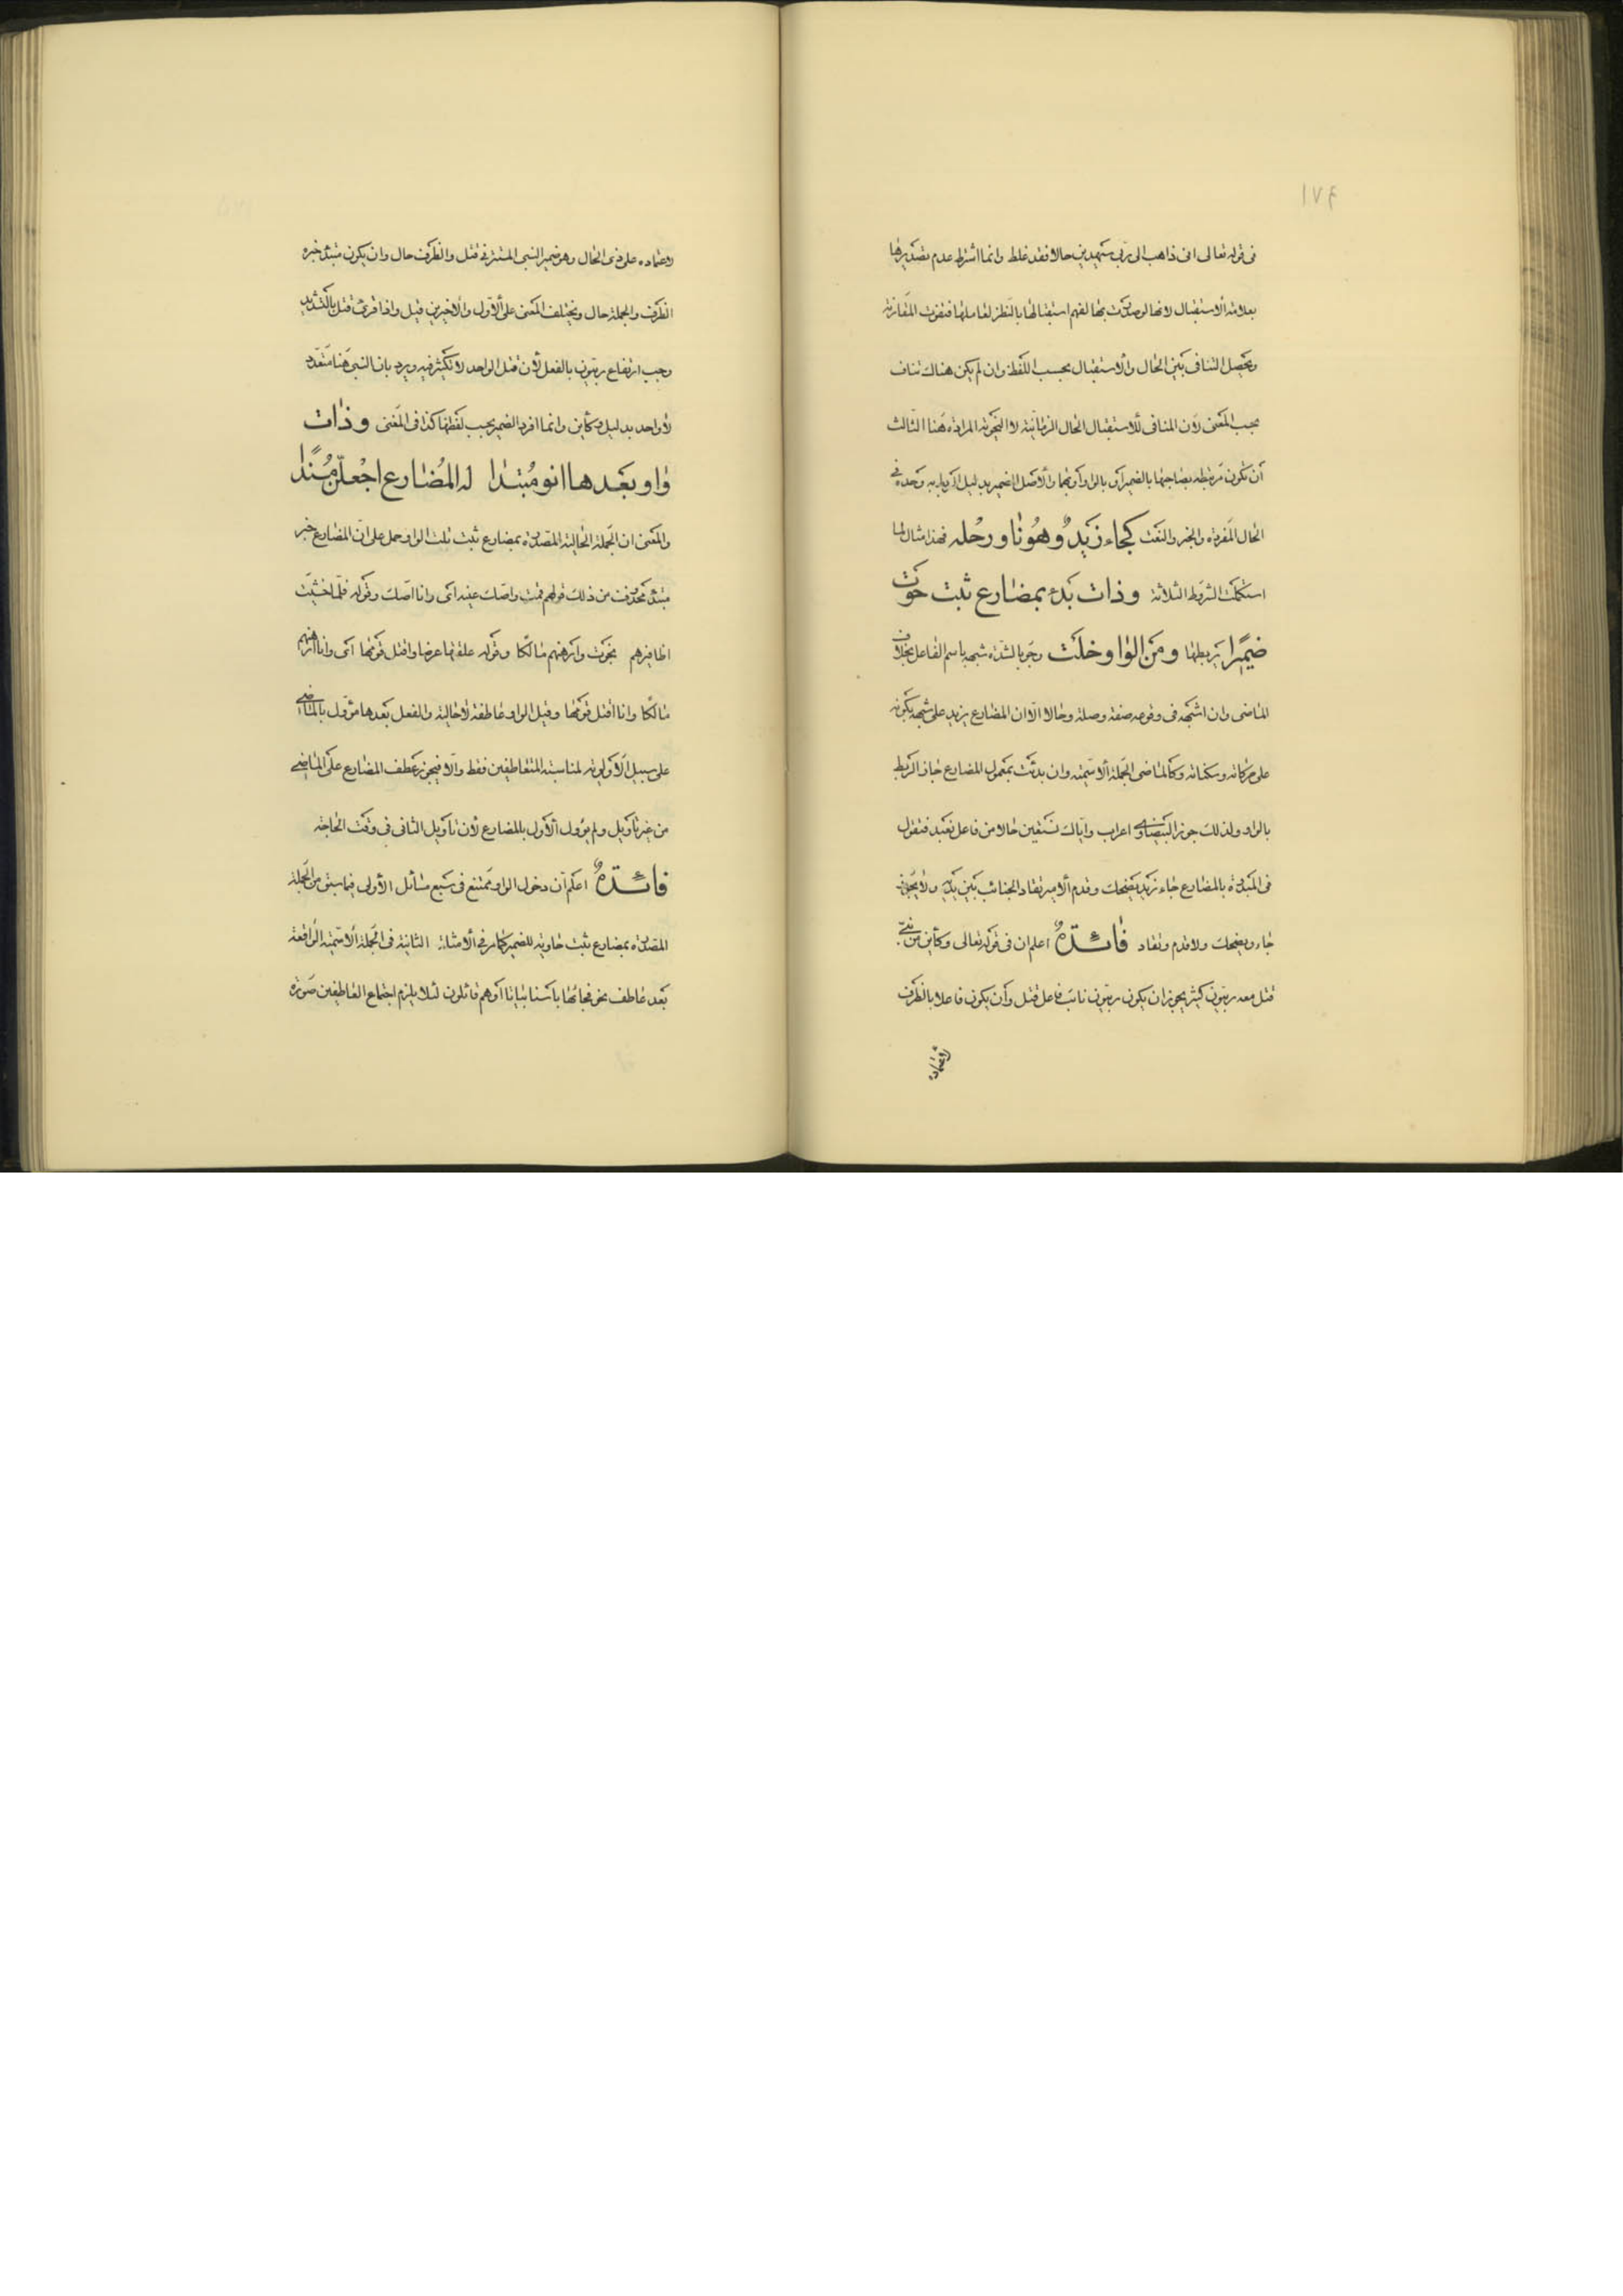 ١٧٤
فى قوله تعالى انى ذاهب الى ربى سيهدين حالا فقد غلط وانما اشترط عدم تصديرها
بعلامة الاستقبال لانها لو صدرت بها لفهم استقبالها بالنظر لعاملها فتفوت المقارنة
ويحصل التنافى بين الحال والاستقبال بحسب اللفظ وان لم يكن هناك تناف
بحسب المعنى لان المنافى للاستقبال الحال الزمانية لا النحوية المرادة هنا الثالث
ان تكون مرتبطة بصاحبها بالضمير او بالواو او بهما والاصل الضمير بدليل الربط به وحده فى
الحال المفردة والخبر والنعت كجاء زيد وهو ناو رحله فهذا مثال لما
استكملت الشروط الثلاثة وذات بدء بمضارع ثبت حوت
ضميرا يربطها ومن الواو خلت وجوبا لشدة شبهه باسم الفاعل بخلاف
الماضى وان اشبهه فى وقوعه صفة وصلة وحالا الا ان المضارع يزيد على شبهه بكونه
على حركاته وسكناته وكالماضى الجملة الاسمية وان بدئت بمعمول المضارع جاز الربط
بالواو ولذلك جوز البيضاوى اعراب واياك نستعين حالا من فاعل نعبد فتقول
فى المبدوءة بالمضارع جاء زيد يضحك وقدم الامير تقاد الجنائب بين يديه ولا يجوز
جاء ويضحك ولا قدم وتقاد فائدة اعلم ان فى قوله تعالى وكأين من نبى
قتل معه ربيون كثير يجوز ان يكون ربيون نائب فاعل قتل وان يكون فاعلا بالظرف
لاعتماده
لاعتماده على ذى الحال وهو ضمير النبى المستتر فى قتل والظرف حال وان يكون مبتدء خبره
الظرف والجملة حال ويختلف المعنى على الاول والاخيرين قيل واذا قرئ قتل بالتشديد
وجب ارتفاع ربيون بالفعل لان قتل الواحد لا تكثير فيه ويرد بان النبى هنا متعدد
لا واحد بدليل وكأين وانما افرد الضمير بحسب لفظها كذا فى المغنى وذات
واو بعدها انو مبتدا له المضارع اجعلن مسندا
والمعنى ان الجملة الحالية المصدرة بمضارع ثبت تلت الواو حمل على ان المضارع خبر
مبتدء محذوف من ذلك قولهم قمت واصك عينه اى وانا اصك وقوله فلما خشيت
اظافيرهم نجوت وارهنهم مالكا وقوله علقتها عرضا واقتل قومها اى وانا ارهنهم
مالكا وانا اقتل قومها وقيل الواو عاطفة لا حالية والفعل بعدها مؤول بالماضى
على سبيل الاولوية لمناسبة المتعاطفين فقط والا فيجوز عطف المضارع على الماضى
من غير تأويل ولم يؤول الاول بالمضارع لان تأويل الثانى فى وقت الحاجة
فائدة اعلم ان دخول الواو ممتنع فى سبع مسائل الاولى فيما سبق من الجملة
المصدرة بمضارع ثبت حاوية للضمير كما مر فى الامثلة الثانية فى الجملة الاسمية الواقعة
بعد عاطف نحو فجائها باسنا بياتا او هم قائلون لئلا يلزم اجتماع العاطفين صورة